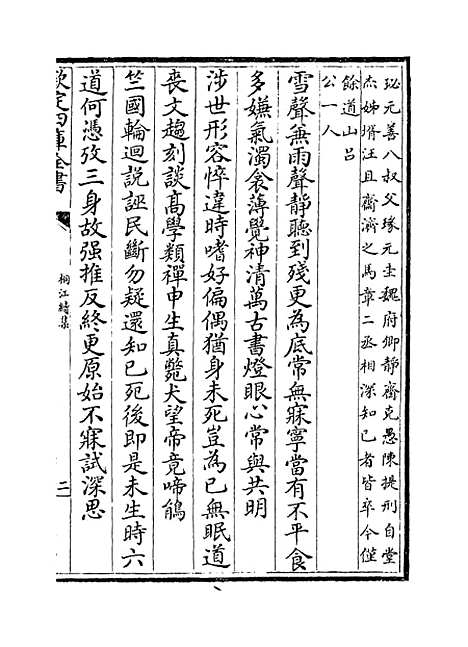 珌元善八叔父瑑元圭魏府卿静齋克愚陳提刑自堂
杰姊壻汪且齋濟之馬章二丞相深知已者皆卒今僅
餘道山吕
公一人
雪聲無雨聲靜聽到殘更為底常無寐寧當有不平食
多嫌氣濁衾薄覺神清萬古書燈眼心常與共明
涉世形容悴違時嗜好偏偶猶身未死豈為已無眠道
喪文趨刻談髙學類禪申生真斃犬望帝竟啼鵑
竺國輪迴說誣民斷勿疑還知已死後即是未生時六
道何憑攷三身故强推反終更原始不寐試深思
欽定四庫全書
桐江續集
二